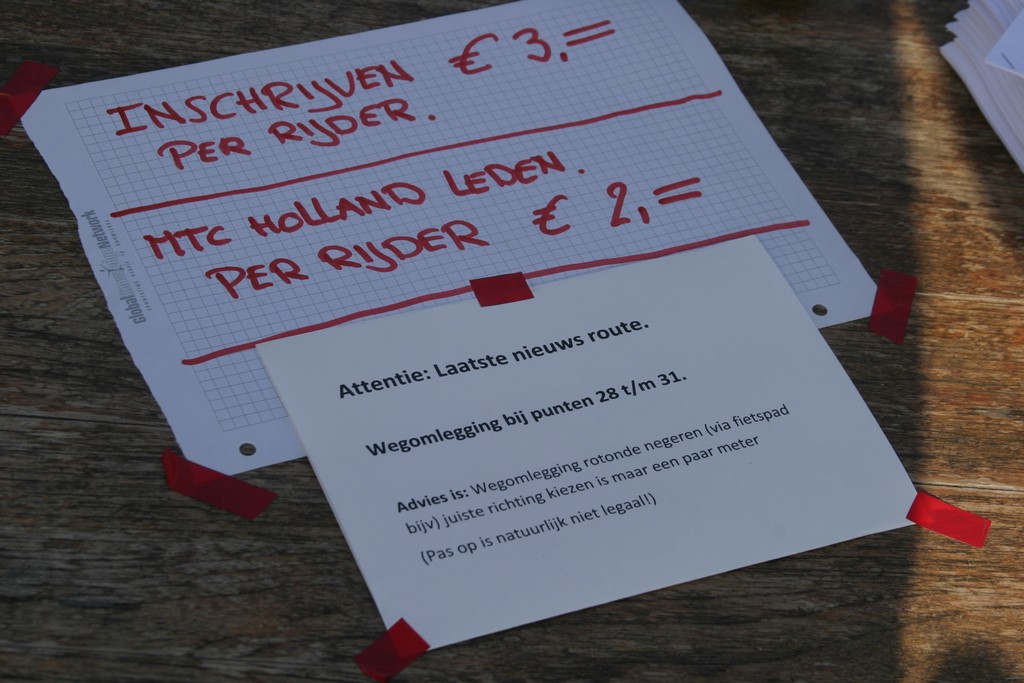 INSCHRIJVEN € 3,=
PER RIJDER.
MTC HOLLAND LEDEN.
PER RIJDER € 2,=
Attentie: Laatste nieuws route.
Wegomlegging bij punten 28 t/m 31.
Advies is: Wegomlegging rotonde negeren (via fietspad
bijv) juiste richting kiezen is maar een paar meter
(Pas op is natuurlijk niet legaal!)